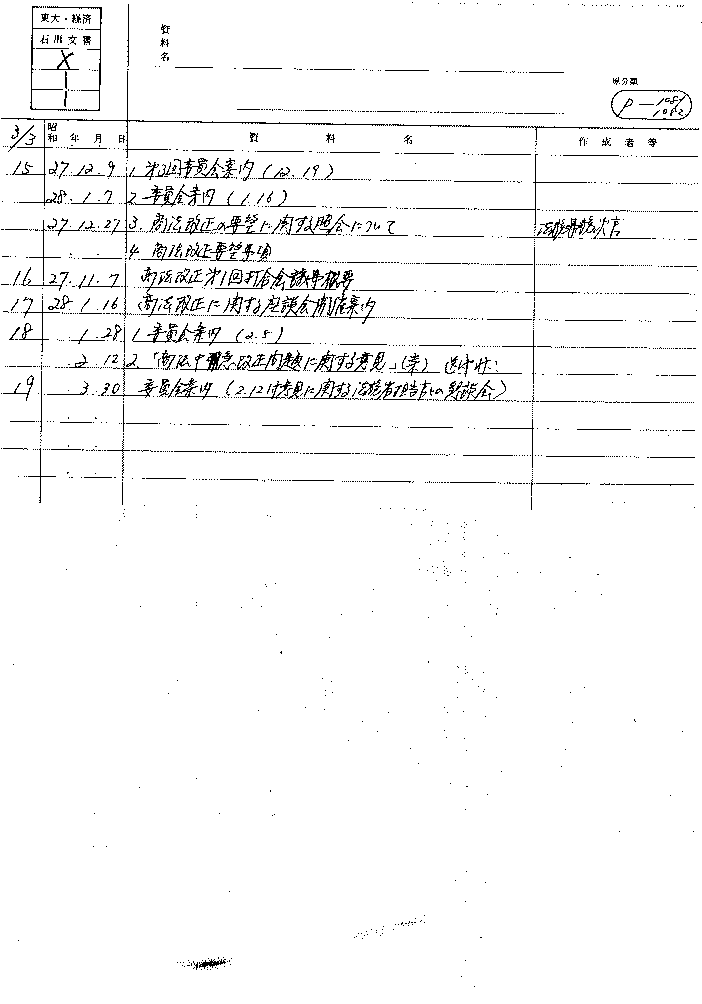 東大・経済
石川文書
X
資料名
原分類
P-1081
1082
3/3 昭和 年 月 日 資料名 作成者等
15 27.12.9 1. 第3回委員会案内 (12.19)
28.1.7 2. 委員会案内 (1.16)
27.12.27 3. 商法改正の要望に関する照会について 法務事務次官
4. 商法改正要望事項
16 27.11.7 商法改正第1回打合会議事概要
17 28.1.16 商法改正に関する座談会開催案内
18 1.28 1 委員会案内 (2.5)
2.12 2. 「商法中 改正問題に関する意見」(案) 送付状
19 3.30 委員会案内 (2.12付意見に関する法務省担当官との懇談会)